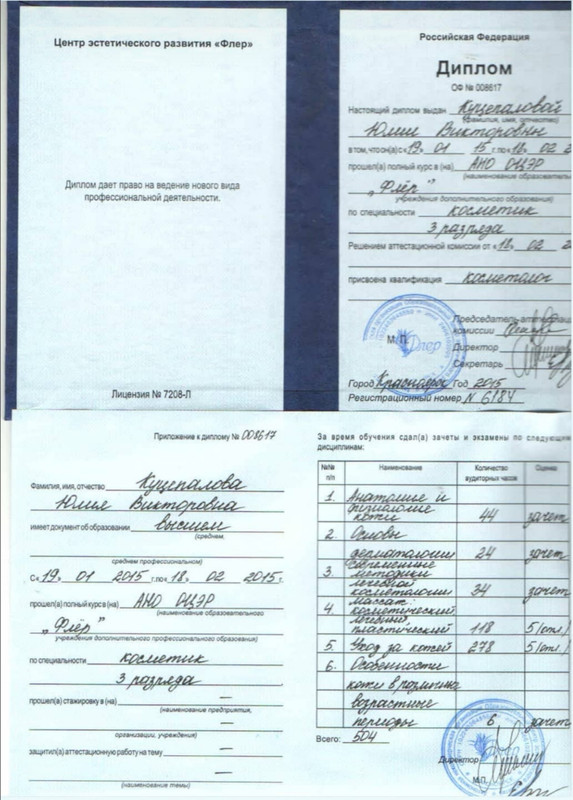 Центр эстетического развития «Флер»
Диплом дает право на ведение нового вида
профессиональной деятельности.
Лицензия № 7208-Л
Российская Федерация
Диплом
ОФ № 008617
Настоящий диплом выдан Куцепаловой
(фамилия, имя, отчество)
Юлии Викторовны
в том, что он(а) с «19» 01 15 г. по «18» 02 2
прошел(а) полный курс в (на) АНО ОЦЭР
(наименование образовательно
„Флёр”
учреждения дополнительного образования)
по специальности косметик
3 разряда
Решением аттестационной комиссии от «18» 02 2
присвоена квалификация косметолог
Председатель аттестац
комиссии
М.П.
Флер
Директор
Секретарь
Город Красноярск Год 2015
Регистрационный номер N 6184
Приложение к диплому № 008617
Фамилия, имя, отчество Куцепалова
Юлия Викторовна
имеет документ об образовании высшем
(среднем,
среднем профессиональном)
С «19» 01 2015 г. по «18» 02 2015 г.
прошел(а) полный курс в (на) АНО ОЦЭР
(наименование образовательного
„Флёр”
учреждения дополнительного профессионального образования)
по специальности косметик
3 разряда
прошел(а) стажировку в (на) —
(наименование предприятия,
—
организации, учреждения)
защитил(а) аттестационную работу на тему —
—
(наименование темы)
За время обучения сдал(а) зачеты и экзамены по следующим
дисциплинам:
№№ п/п Наименование Количество аудиторных часов Оценка
1. Анатомия и
физиология
кожи 44 зачет
2. Основы
дерматологии 24 зачет
3. Современные
методики
лечебной
косметологии 34 зачет
4. Массаж:
косметический
лечебный
пластический 118 5/отл./
5. Уход за кожей 278 5/отл./
6. Особенности
кожи в различные
возрастные
периоды 6 зачет
Всего: 504
Директор
М.П.